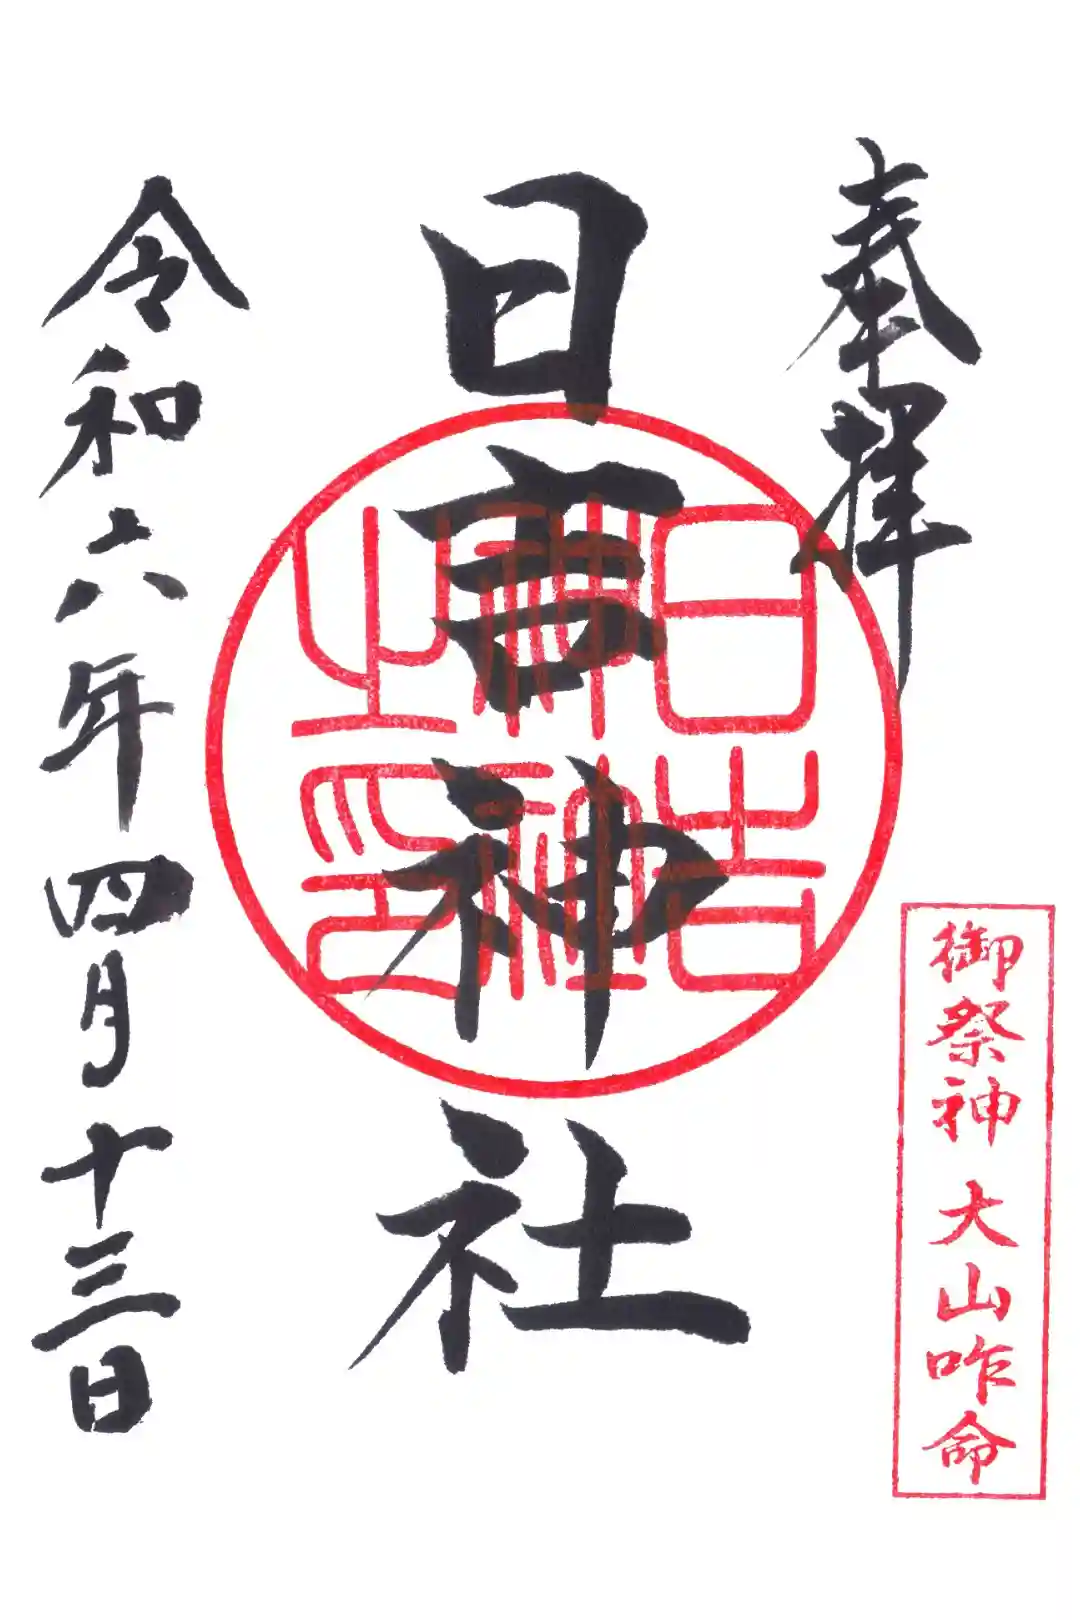 奉拝
御祭神 大山咋命
日吉神社
日吉
神社
之印
令和六年四月十三日